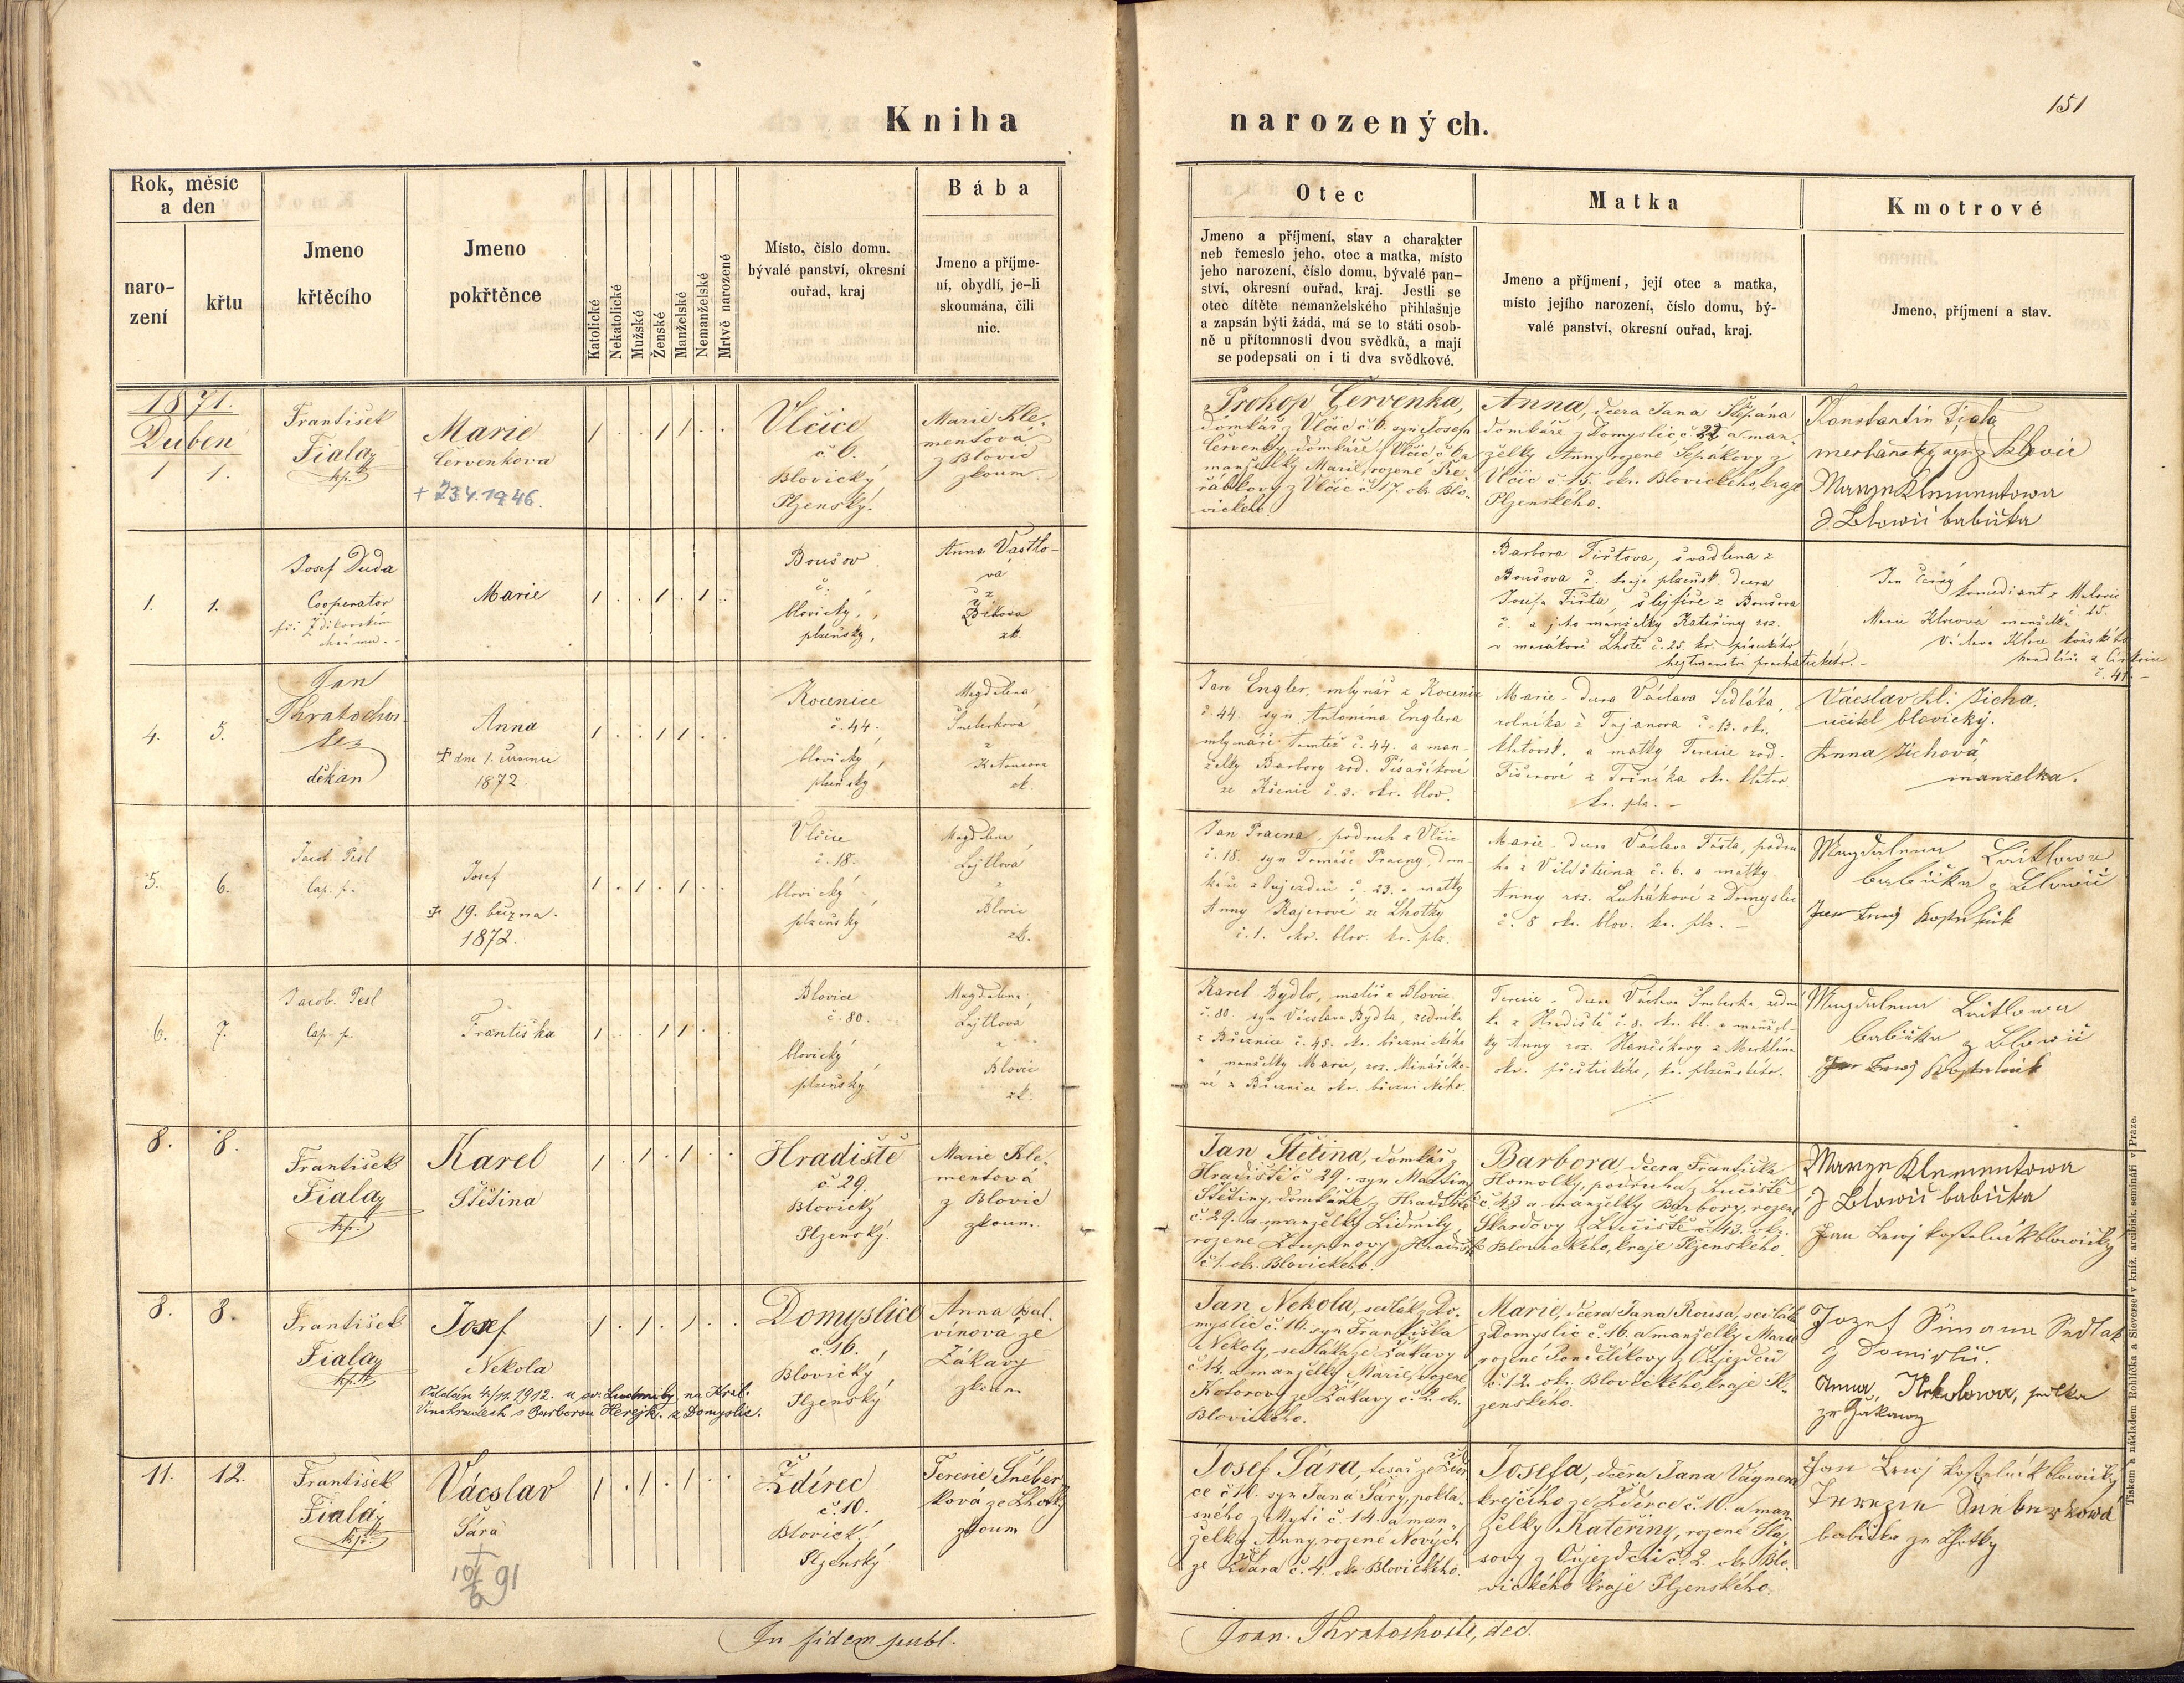 Kniha
narozených.
151
Rok, měsíc
a den
naro-
zení
křtu
Jmeno
křtěcího
Jmeno
pokřtěnce
Katolické
Nekatolické
Mužské
Ženské
Manželské
Nemanželské
Mrtvě narozené
Místo, číslo domu.
bývalé panství, okresní
ouřad, kraj
Bába
Jmeno a příjme-
ní, obydlí, je-li
skoumána, čili
nic.
Otec
Jmeno a příjmení, stav a charakter
neb řemeslo jeho, otec a matka, místo
jeho narození, číslo domu, bývalé pan-
ství, okresní ouřad, kraj. Jestli se
otec dítěte nemanželského přihlašuje
a zapsán býti žádá, má se to státi osob-
ně u přítomnosti dvou svědků, a mají
se podepsati on i ti dva svědkové.
Matka
Jmeno a příjmení, její otec a matka,
místo jejího narození, číslo domu, bý-
valé panství, okresní ouřad, kraj.
Kmotrové
Jmeno, příjmení a stav.
1871.
Duben
1 1.
František
Fiala
kp.
Marie
Červenkova
+ 23.4.1946.
Vlčice
č 6.
Blovický
Plzenský.
Marie Kle-
mentova
z Blovic
zkoum.
Prokop Červenka,
domkář z Vlčic č. 6. syn Josefa
Červenky, domkáře z Vlčic č. 6 a
manželky Marie, rozené
z Vlčic č. 17. okr. Blo-
vického.
Anna, dcera Jana Štěpána
domkáře z Domyslic č. 22 a man-
želky Anny rozené z
Vlčic č. 5. okr. Blovického, kraje
Plzenského.
Konstantin Fiala
z Blovic
Marye Klementowa
z Blowic babička
1. 1.
Josef Duda
Cooperator
při Ždikovském
chrámu.
Marie
Boušov
č.
blovický,
plzeňský,
Anna Vastlo-
vá
z
Zdikova
zk.
Barbora Fiřtova, švadlena z
Boušova č. kraje plzeňsk. dcera
Josefa Fiřta, šlejfíře z Boušova
č. a jeho manželky Kateřiny roz.
v Lhotě č. 25. kr. píseckého
hejtmanství prachatického.
Jan Černý
komediant z Malovic
č. 15.
Marie Klocová manželka
Václava Kloce
č. 41.
4. 5.
Jan
Kratochvi-
le
děkan
Anna
+ dne 1. června
1872.
Kocenice
č. 44.
blovický,
plzeňský
Magdalena
Šneberková
z
zk.
Jan Engler, mlynář z Kocenic
č. 44. syn Antonína Englera
mlynáře tamtéž č. 44. a man-
želky Barbory rod. Písaříkové
ze č. 3. okr. blov.
Marie - dcera Václava Sedláka,
rolníka z Tajanova č. 13. okr.
klatovsk. a matky Terezie rod.
Fišerové z Točníka okr. klatov.
kr. plz. -
Václav Kl: Zicha,
učitel blovický.
Anna Zichová,
manželka.
5. 6.
Jacob. Pešl
Cap. p.
Josef
+ 19. března.
1872.
Vlčice
č. 18.
blovický,
plzeňský
Magdalena
Lajtlová
z
Blovic
zk.
Jan Pracna, podruh z Vlčic
č. 18. syn Tomáše Pracny, dom-
káře z Oujezdce č. 23. a matky
Anny Kajerové ze Lhotky
č. 1. okr. blov. kr. plz.
Marie - dcera Václava Fósta, podru-
ha z Vildšteina č. 6. a matky
Anny roz. Luhákové z Domyslic
č. 8 okr. blov. kr. plz. -
Magdalena Laitlowa
babička z Blowic
Jan
6. 7.
Jacob. Pešl
Cap. p.
Františka
Blovice
č. 80.
blovický,
plzeňský
Magdalena,
Lajtlová
z
Blovic
zk.
Karel Bydlo, malíř z Blovic
č. 80. syn Václava Bydla, zedníka
z Březnice č. 45. okr. březnického
a manželky Marie, roz.
z Březnice okr. březnického.
Terezie - dcera Václava Šneberka zední-
ka z Hradiště č. 8. okr. bl. a manžel-
ky Anny roz. Hančíkovy z Merklína
okr. přeštického, kr. plzeňského.
Magdalena Laitlowa
babička z Blowic
Jan
8. 8.
František
Fiala
kp.
Karel
Štětina
Hradiště
č 29.
Blovický
Plzenský.
Marie Kle-
mentová
z Blovic
zkoum.
Jan Štětina, domkář z
Hradiště č. 29. syn Martina
Štětiny, domkáře z Hradiště
č. 29. a manželky Lidmily,
rozené z Hradiště
č. 1. okr. Blovického.
Barbora, dcera Františka
Homolky, podruha z Louňště
č 43 a manželky Barbory, rozené
Škardovy z č. 43. okr.
Blovického, kraje Plzenského.
Marye Klementowa
z Blowic babička
Jan kostelník blowický
8. 8.
František
Fiala
kp.
Josef
Nekola
Oddán 4/11. 1912. u sv. Ludmily na Král.
Vinohradech s Barborou Herejk. z Domyslic.
Domyslice
č. 16.
Blovický
Plzenský
Anna Bal-
vínova ze
Žákavy
zkoum.
Jan Nekola, sedlák z Do-
myslic č. 16. syn Františka
Nekoly, sedláka ze Žákavy
č. 14. a manželky Marie, rozené
Kotorovy ze Žákavy č. 2. okr.
Blovického.
Marie, dcera Jana Rousa, sedláka
z Domyslic č. 16. a manželky Marie
rozené Pondělíkovy z Oujezdce
č. 12. okr. Blovického, kraje Pl-
zenského.
Jozef Šimana Sedlak
z Domislic.
Anna, Nekolowa, selka
ze Žakawy
11. 12.
František
Fiala
kp.
Vácslav
Šára
+
10/6 91
Ždírec
č. 10.
Blovický
Plzenský
Terezie Šneber-
ková ze Lhotky
zkoum
Josef Šára, tesař ze Ždír-
ce č 10. syn Jana Šáry, pokla-
sného z Mytí č. 14. a man-
želky Anny, rozené Nových
ze Žďára č. 4. okr. Blovického.
Josefa, dcera Jana Vágnera
krejčího ze Ždírce č. 10. a man-
želky Kateřiny, rozené
sovy z Oujezdce č. 2. okr. Blo-
vického kraje Plzenského.
Jan kostelník blowický
Terezie Šneberkowá
babička ze Lhotky
In fidem publ.
Joan. Kratochvile, dec.
Tiskem a nákladem Rohlíčka a Sieversa v kníž. arcibisk. semináři v Praze.